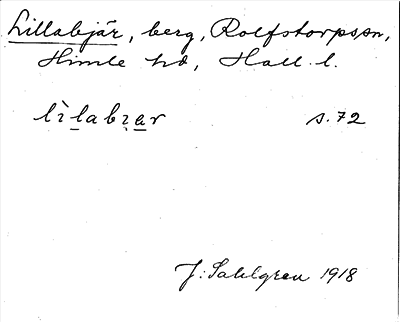 Lillabjär, berg, Rolfstorpssn,
Himle hd, Hall. l.
lìlabɪar s. 72
J. Sahlgren 1918